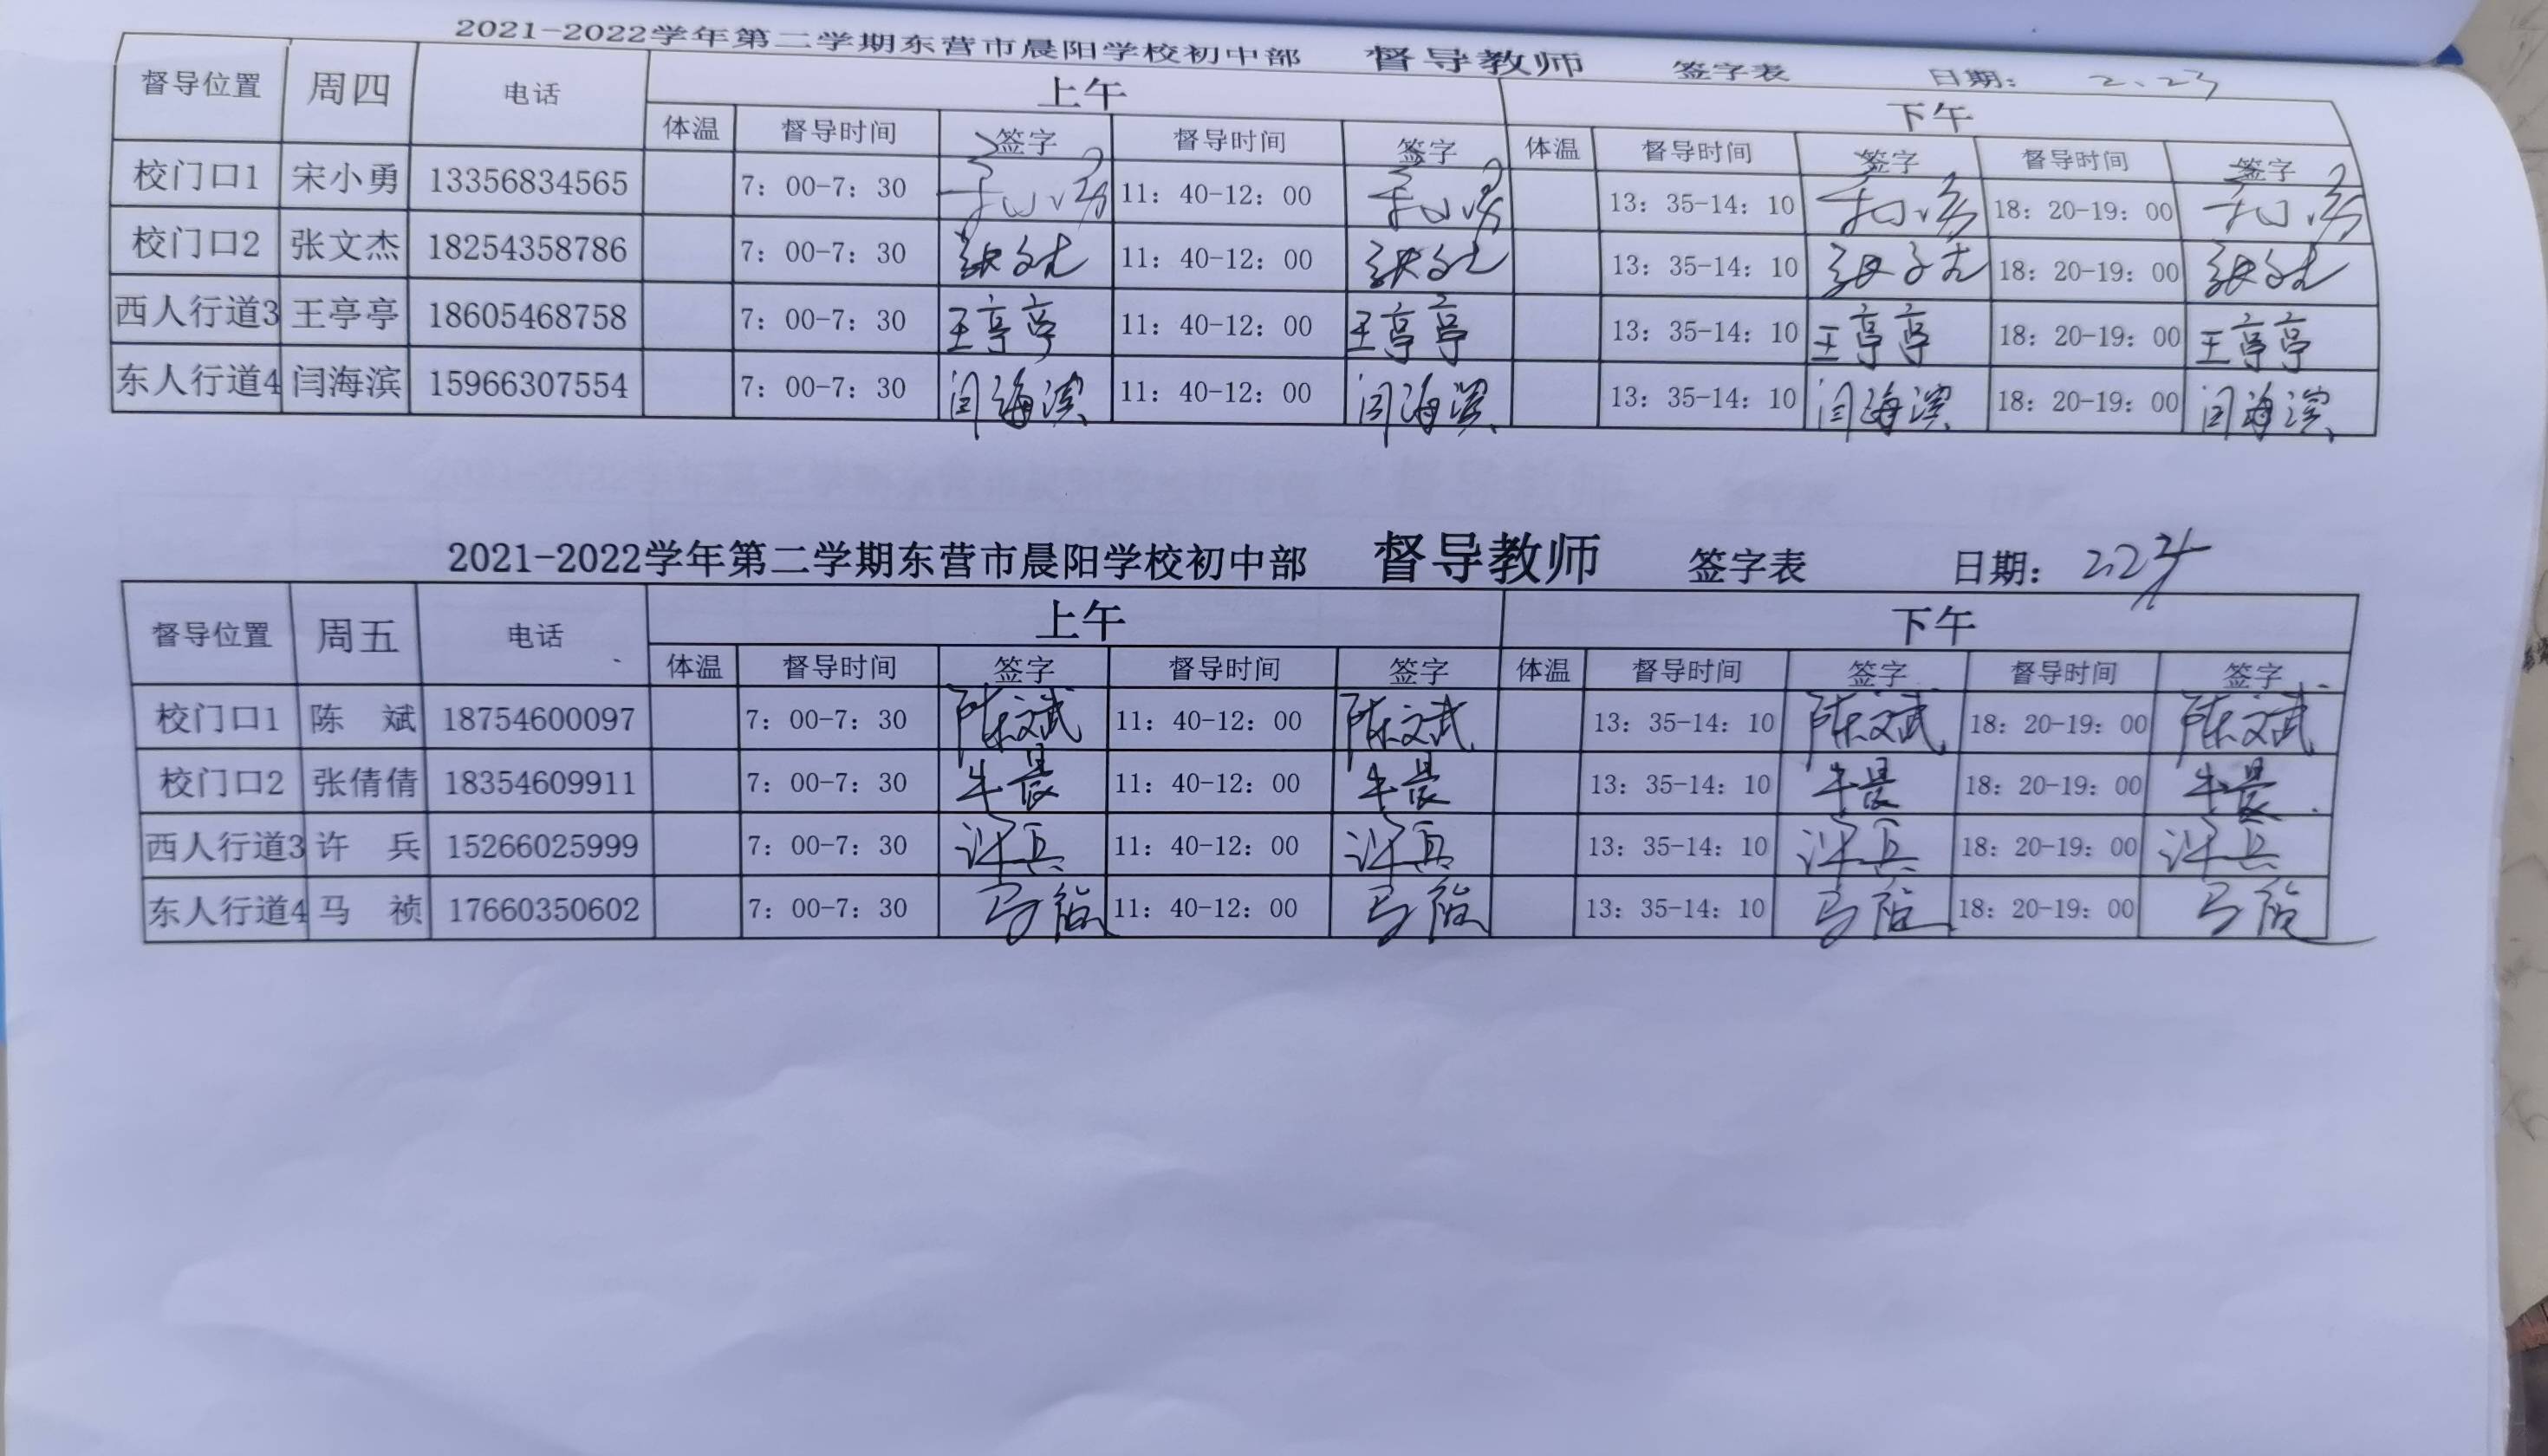 2021-2022学年第二学期东营市晨阳学校初中部 督导教师 签字表 日期： 2.23
督导位置 周四 电话 上午 下午
体温 督导时间 签字 督导时间 签字 体温 督导时间 签字 督导时间 签字
校门口1 宋小勇 13356834565 7：00-7：30 11：40-12：00 13：35-14：10 18：20-19：00
校门口2 张文杰 18254358786 7：00-7：30 张文杰 11：40-12：00 张文杰 13：35-14：10 张文杰 18：20-19：00 张文杰
西人行道3 王亭亭 18605468758 7：00-7：30 王亭亭 11：40-12：00 王亭亭 13：35-14：10 王亭亭 18：20-19：00 王亭亭
东人行道4 闫海滨 15966307554 7：00-7：30 闫海滨 11：40-12：00 闫海滨 13：35-14：10 闫海滨 18：20-19：00 闫海滨
2021-2022学年第二学期东营市晨阳学校初中部 督导教师 签字表 日期： 2.24
督导位置 周五 电话 上午 下午
体温 督导时间 签字 督导时间 签字 体温 督导时间 签字 督导时间 签字
校门口1 陈 斌 18754600097 7：00-7：30 陈文斌 11：40-12：00 陈文斌 13：35-14：10 陈文斌 18：20-19：00 陈文斌
校门口2 张倩倩 18354609911 7：00-7：30 牛晨 11：40-12：00 牛晨 13：35-14：10 牛晨 18：20-19：00 牛晨
西人行道3 许 兵 15266025999 7：00-7：30 许兵 11：40-12：00 许兵 13：35-14：10 许兵 18：20-19：00 许兵
东人行道4 马 祯 17660350602 7：00-7：30 马祯 11：40-12：00 马祯 13：35-14：10 马祯 18：20-19：00 马祯